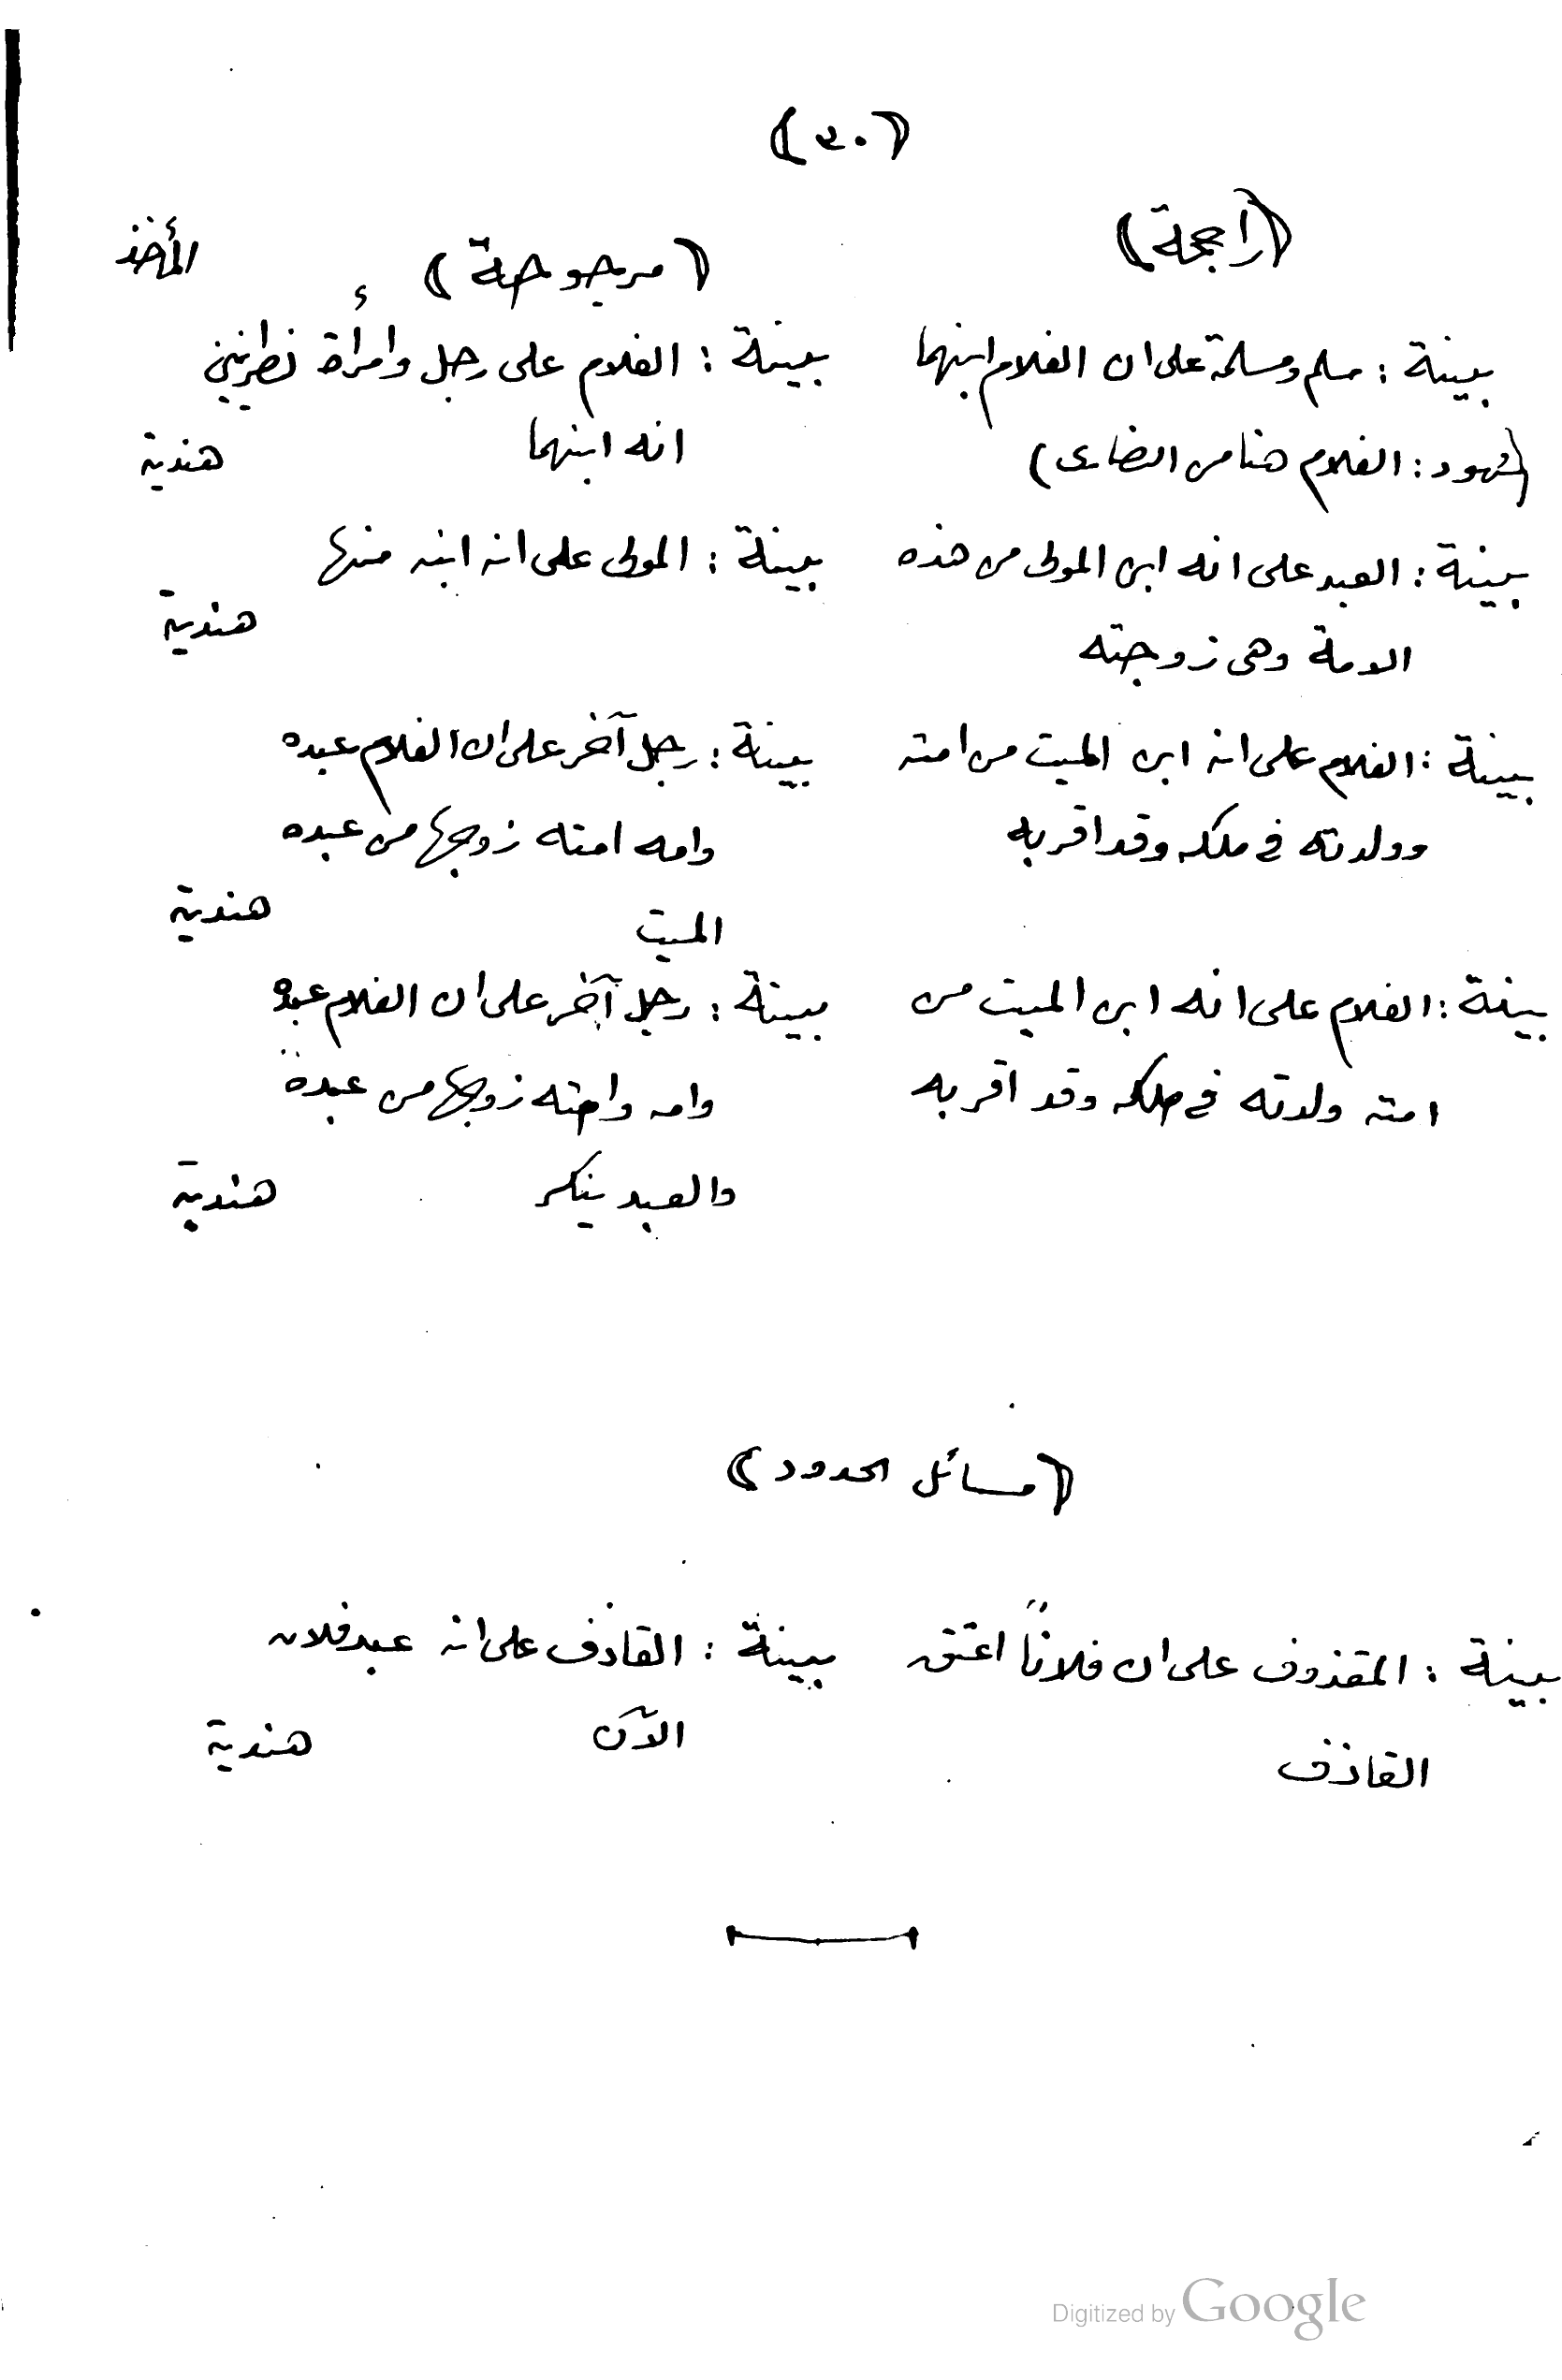 (٣٠)
(راجحة)
(مرجوحة)
المأخذ
بينة : مسلم ومسلمة على ان الغلام ابنهما
(شهود : الغلام هنا من النصارى)
بينة : الغلام على رجل وامرأة نصرانيين
انه ابنهما
هندية
بينة : العبد على انه ابن المولى من هذه
الامة وهى زوجته
بينة : المولى على انه ابنه منها
هندية
بينة : الغلام على انه ابن الميت من امته
وولدته فى ملكه وقد اقر به
بينة : رجل آخر على ان الغلام عبده
وامه امته زوجها من عبده
الميت
هندية
بينة : الغلام على انه ابن الميت من
امته ولدته فى ملكه وقد اقر به
بينة : رجل آخر على ان الغلام عبده
وامه وامته زوجها من عبده
والعبد ينكر
هندية
(مسائل الحدود)
بينة : المقذوف على ان فلاناً اعتق
القاذف
بينة : القاذف على انه عبد فلان
الآن
هندية
Digitized by Google